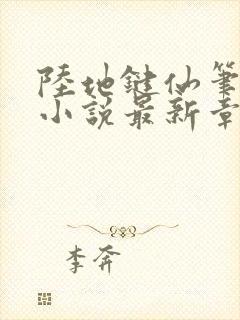 陸地鍵仙筆
小説最新章
李奔